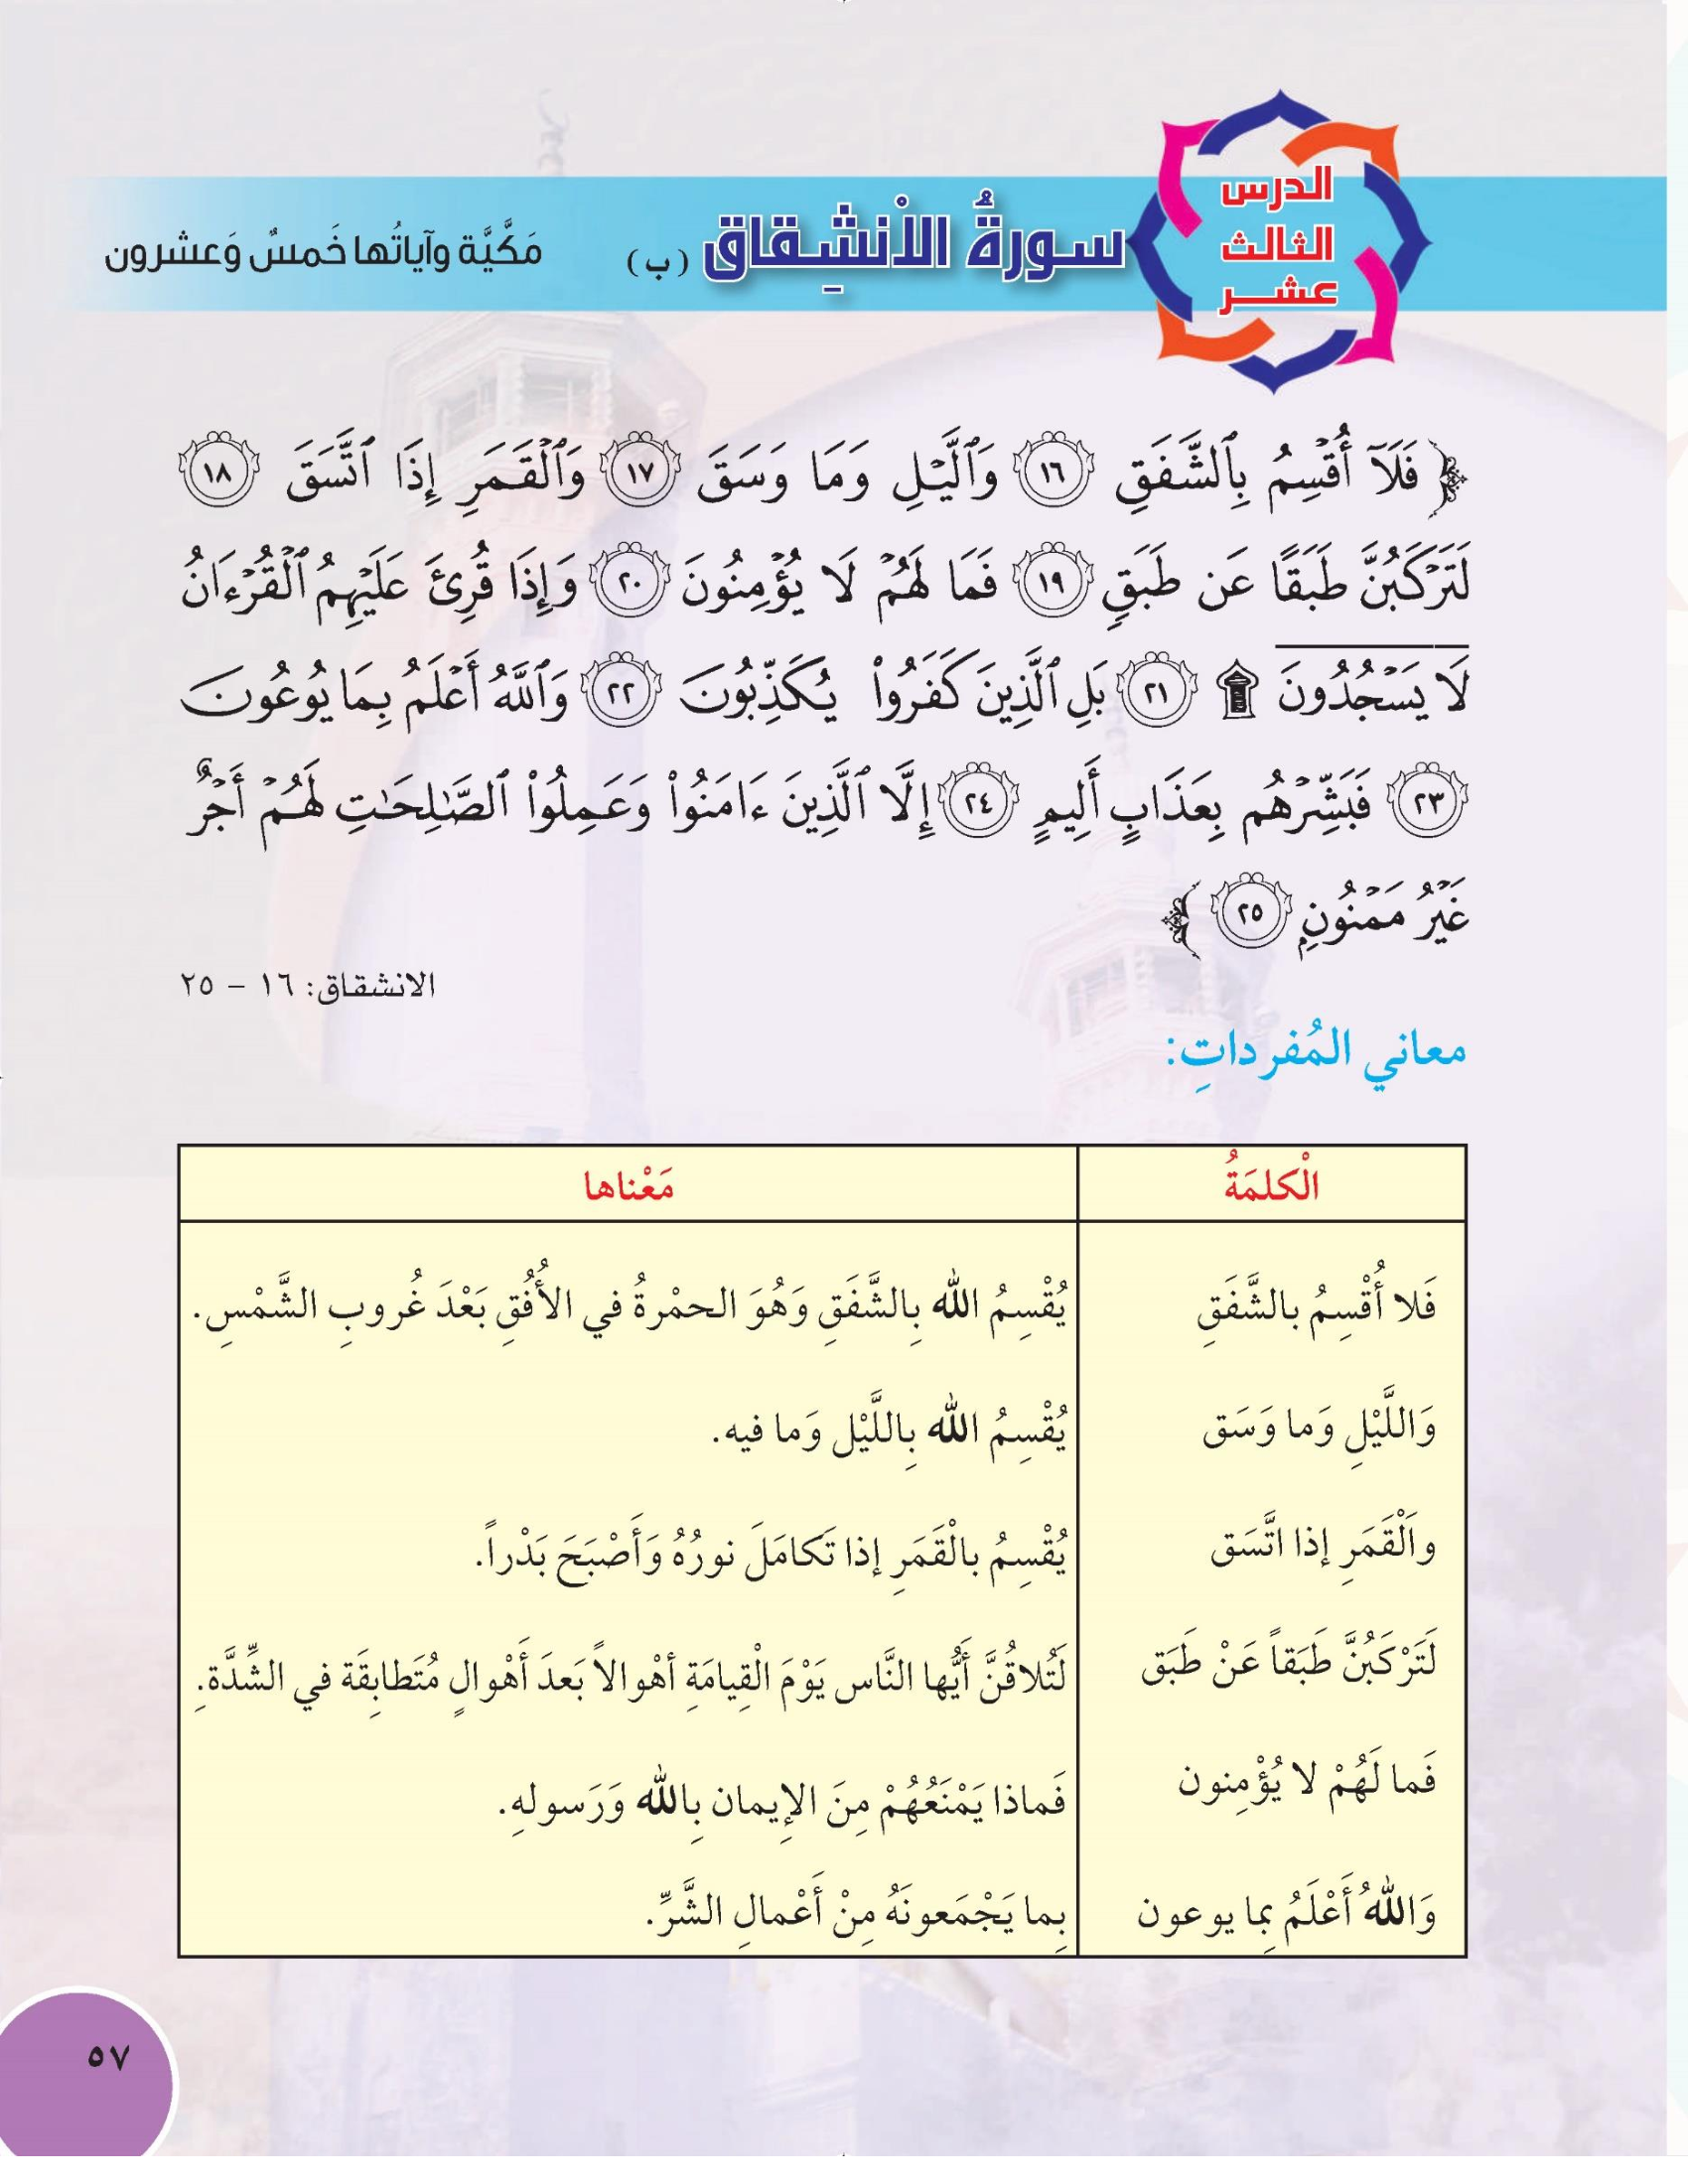 الدرس
الثالث
عشر
سورةُ الاْنشِقاق (ب) مَكَّيَّة وآياتُها خَمسٌ وَعشرون
﴿ فَلَآ أُقۡسِمُ بِٱلشَّفَقِ ١٦ وَٱلَّيۡلِ وَمَا وَسَقَ ١٧ وَٱلۡقَمَرِ إِذَا ٱتَّسَقَ ١٨
لَتَرۡكَبُنَّ طَبَقًا عَن طَبَقٖ ١٩ فَمَا لَهُمۡ لَا يُؤۡمِنُونَ ٢٠ وَإِذَا قُرِئَ عَلَيۡهِمُ ٱلۡقُرۡءَانُ
لَا يَسۡجُدُونَۤ ۩ ٢١ بَلِ ٱلَّذِينَ كَفَرُواْ يُكَذِّبُونَ ٢٢ وَٱللَّهُ أَعۡلَمُ بِمَا يُوعُونَ
٢٣ فَبَشِّرۡهُم بِعَذَابٍ أَلِيمٍ ٢٤ إِلَّا ٱلَّذِينَ ءَامَنُواْ وَعَمِلُواْ ٱلصَّٰلِحَٰتِ لَهُمۡ أَجۡرٌ
غَيۡرُ مَمۡنُونِۭ ٢٥ ﴾
الانشقاق: ١٦ - ٢٥
معاني المُفرداتِ:
الْكلمَةُ مَعْناها
فَلا أُقْسِمُ بالشَّفَقِ يُقْسِمُ الله بِالشَّفَقِ وَهُوَ الحمْرةُ في الأُفُقِ بَعْدَ غُروبِ الشَّمْسِ.
وَاللَّيْلِ وَما وَسَق يُقْسِمُ الله بِاللَّيْل وَما فيه.
واَلْقَمَرِ إذا اتَّسَق يُقْسِمُ بالْقَمَرِ إذا تَكامَلَ نورُهُ وَأَصْبَحَ بَدْراً.
لَتَرْكَبُنَّ طَبَقاً عَنْ طَبَق لَتُلاقُنَّ أَيُّها النَّاس يَوْمَ الْقِيامَةِ أهْوالاً بَعدَ أَهْوالٍ مُتَطابِقَة في الشِّدَّة.
فَما لَهُمْ لا يُؤْمِنون فَماذا يَمْنَعُهُمْ مِنَ الإِيمان بِالله وَرَسولهِ.
وَاللهُ أَعْلَمُ بِما يوعون بِما يَجْمَعونَهُ مِنْ أَعْمالِ الشَّرِّ.
٥٧